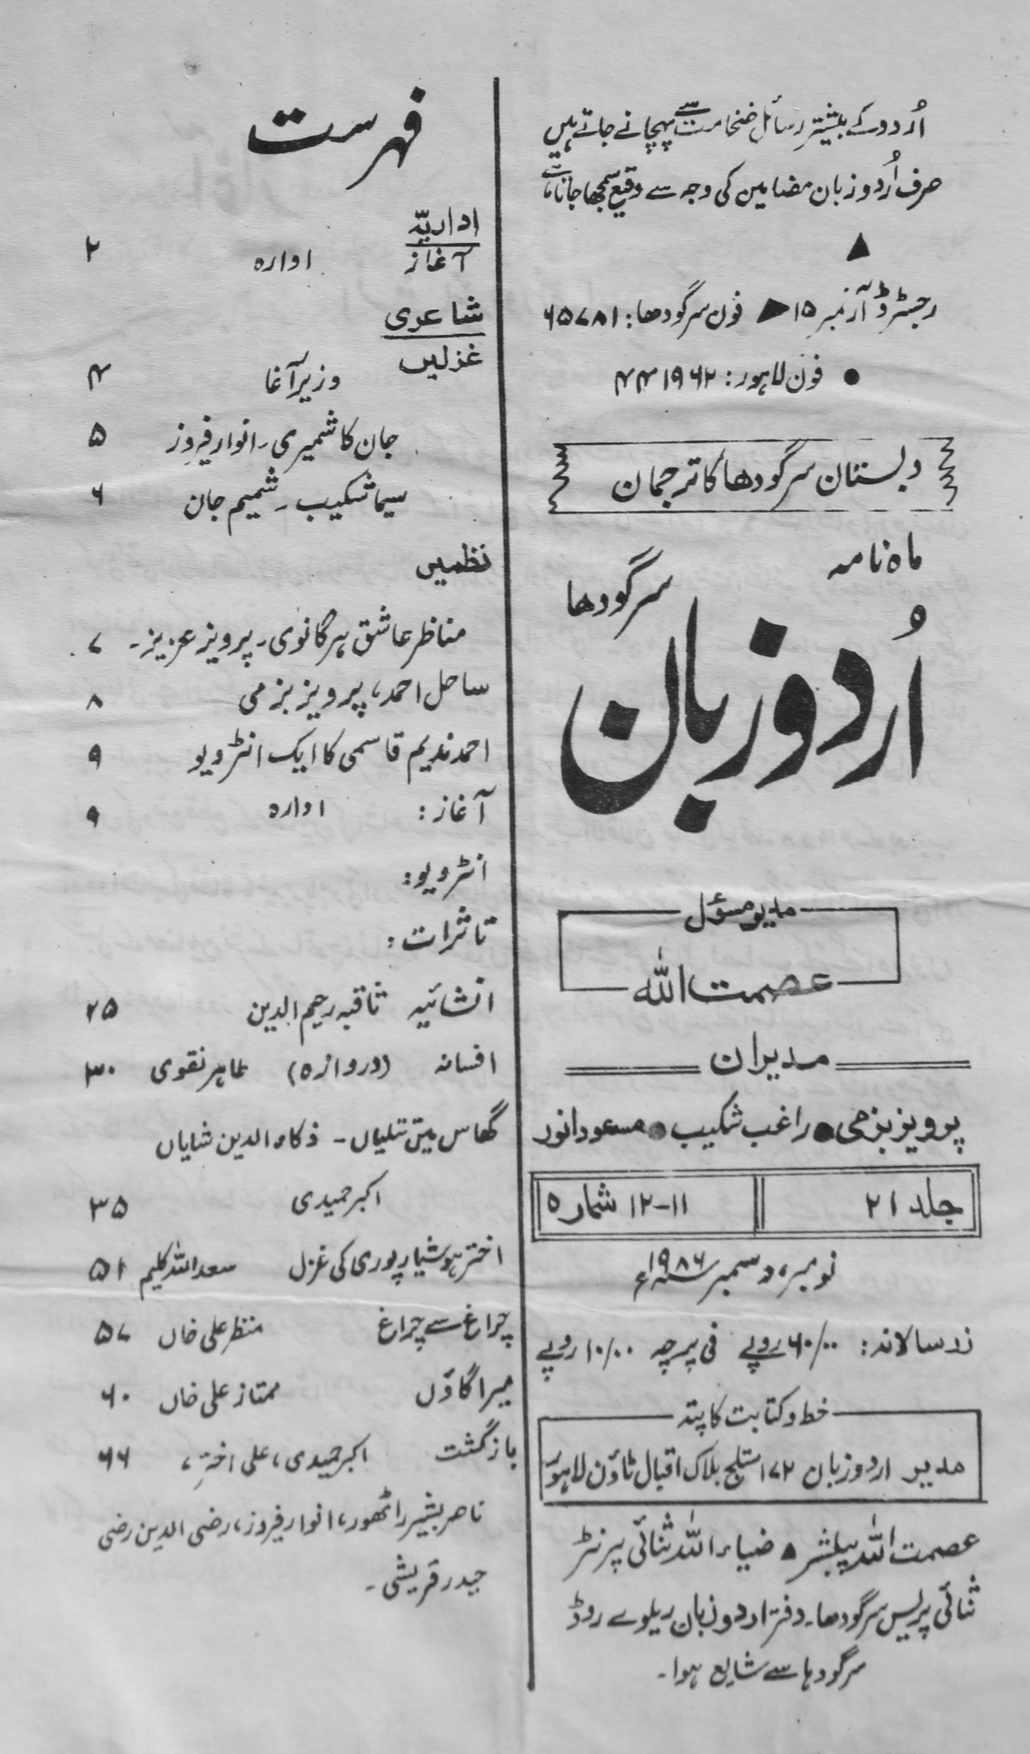 اُردو کے بیشتر رسائل ضخامت سے پہچانے جاتے ہیں
صرف اُردو زبان مضامین کی وجہ سے وقیع سمجھا جاتا ہے
رجسٹرڈ آر نمبر ۱۵ ◀ فون سرگودھا: ۶۵۷۸۱
● فون لاہور: ۴۴۱۹۶۲
دبستان سرگودھا کا ترجمان
ماہ نامہ
سرگودھا
اُردو زبان
مدیر مسؤل
عصمت اللہ
مدیران
پرویز بزمی ● راغب شکیب ● مسعود انور
جلد ۲۱ ۱۱-۱۲ شمارہ ۵
نومبر، دسمبر ۱۹۸۶ء
زر سالانہ: ۶۰/۰۰ روپے فی پرچہ ۱۰/۰۰ روپے
خط و کتابت کا پتہ
مدیر اردو زبان ۱۷۲ ستلج بلاک اقبال ٹاؤن لاہور
عصمت اللہ پبلشر ▲ ضیاء اللہ ثنائی پرنٹر
ثنائی پریس سرگودھا۔ دفتر اردو زبان ریلوے روڈ
سرگودہا سے شایع ہوا۔
فہرست
اداریہ
آغاز ادارہ ۲
شاعری
غزلیں
وزیر آغا ۴
جان کاشمیری۔ انوار فیروز ۵
سیما شکیب۔ شمیم جان ۶
نظمیں
مناظر عاشق ہرگانوی۔ پرویز عزیز۔ ۷
ساحل احمد، پرویز بزمی ۸
احمد ندیم قاسمی کا ایک انٹرویو ۹
آغاز: ادارہ ۹
انٹرویو:
تاثرات:
انشائیہ ثاقبہ رحیم الدین ۲۵
افسانہ (دروازہ) طاہر نقوی ۳۰
گھاس میں تتلیاں - ذکاء الدین شایاں
اکبر حمیدی ۳۵
اختر ہوشیارپوری کی غزل سعد اللہ کلیم ۵۱
چراغ سے چراغ منظر علی خاں ۵۷
میرا گاؤں ممتاز علی خاں ۶۰
بازگشت اکبر حمیدی، علی اختر، ۶۶
ناصر بشیر راٹھور، انوار فیروز، رضی الدین رضی
حیدر قریشی۔